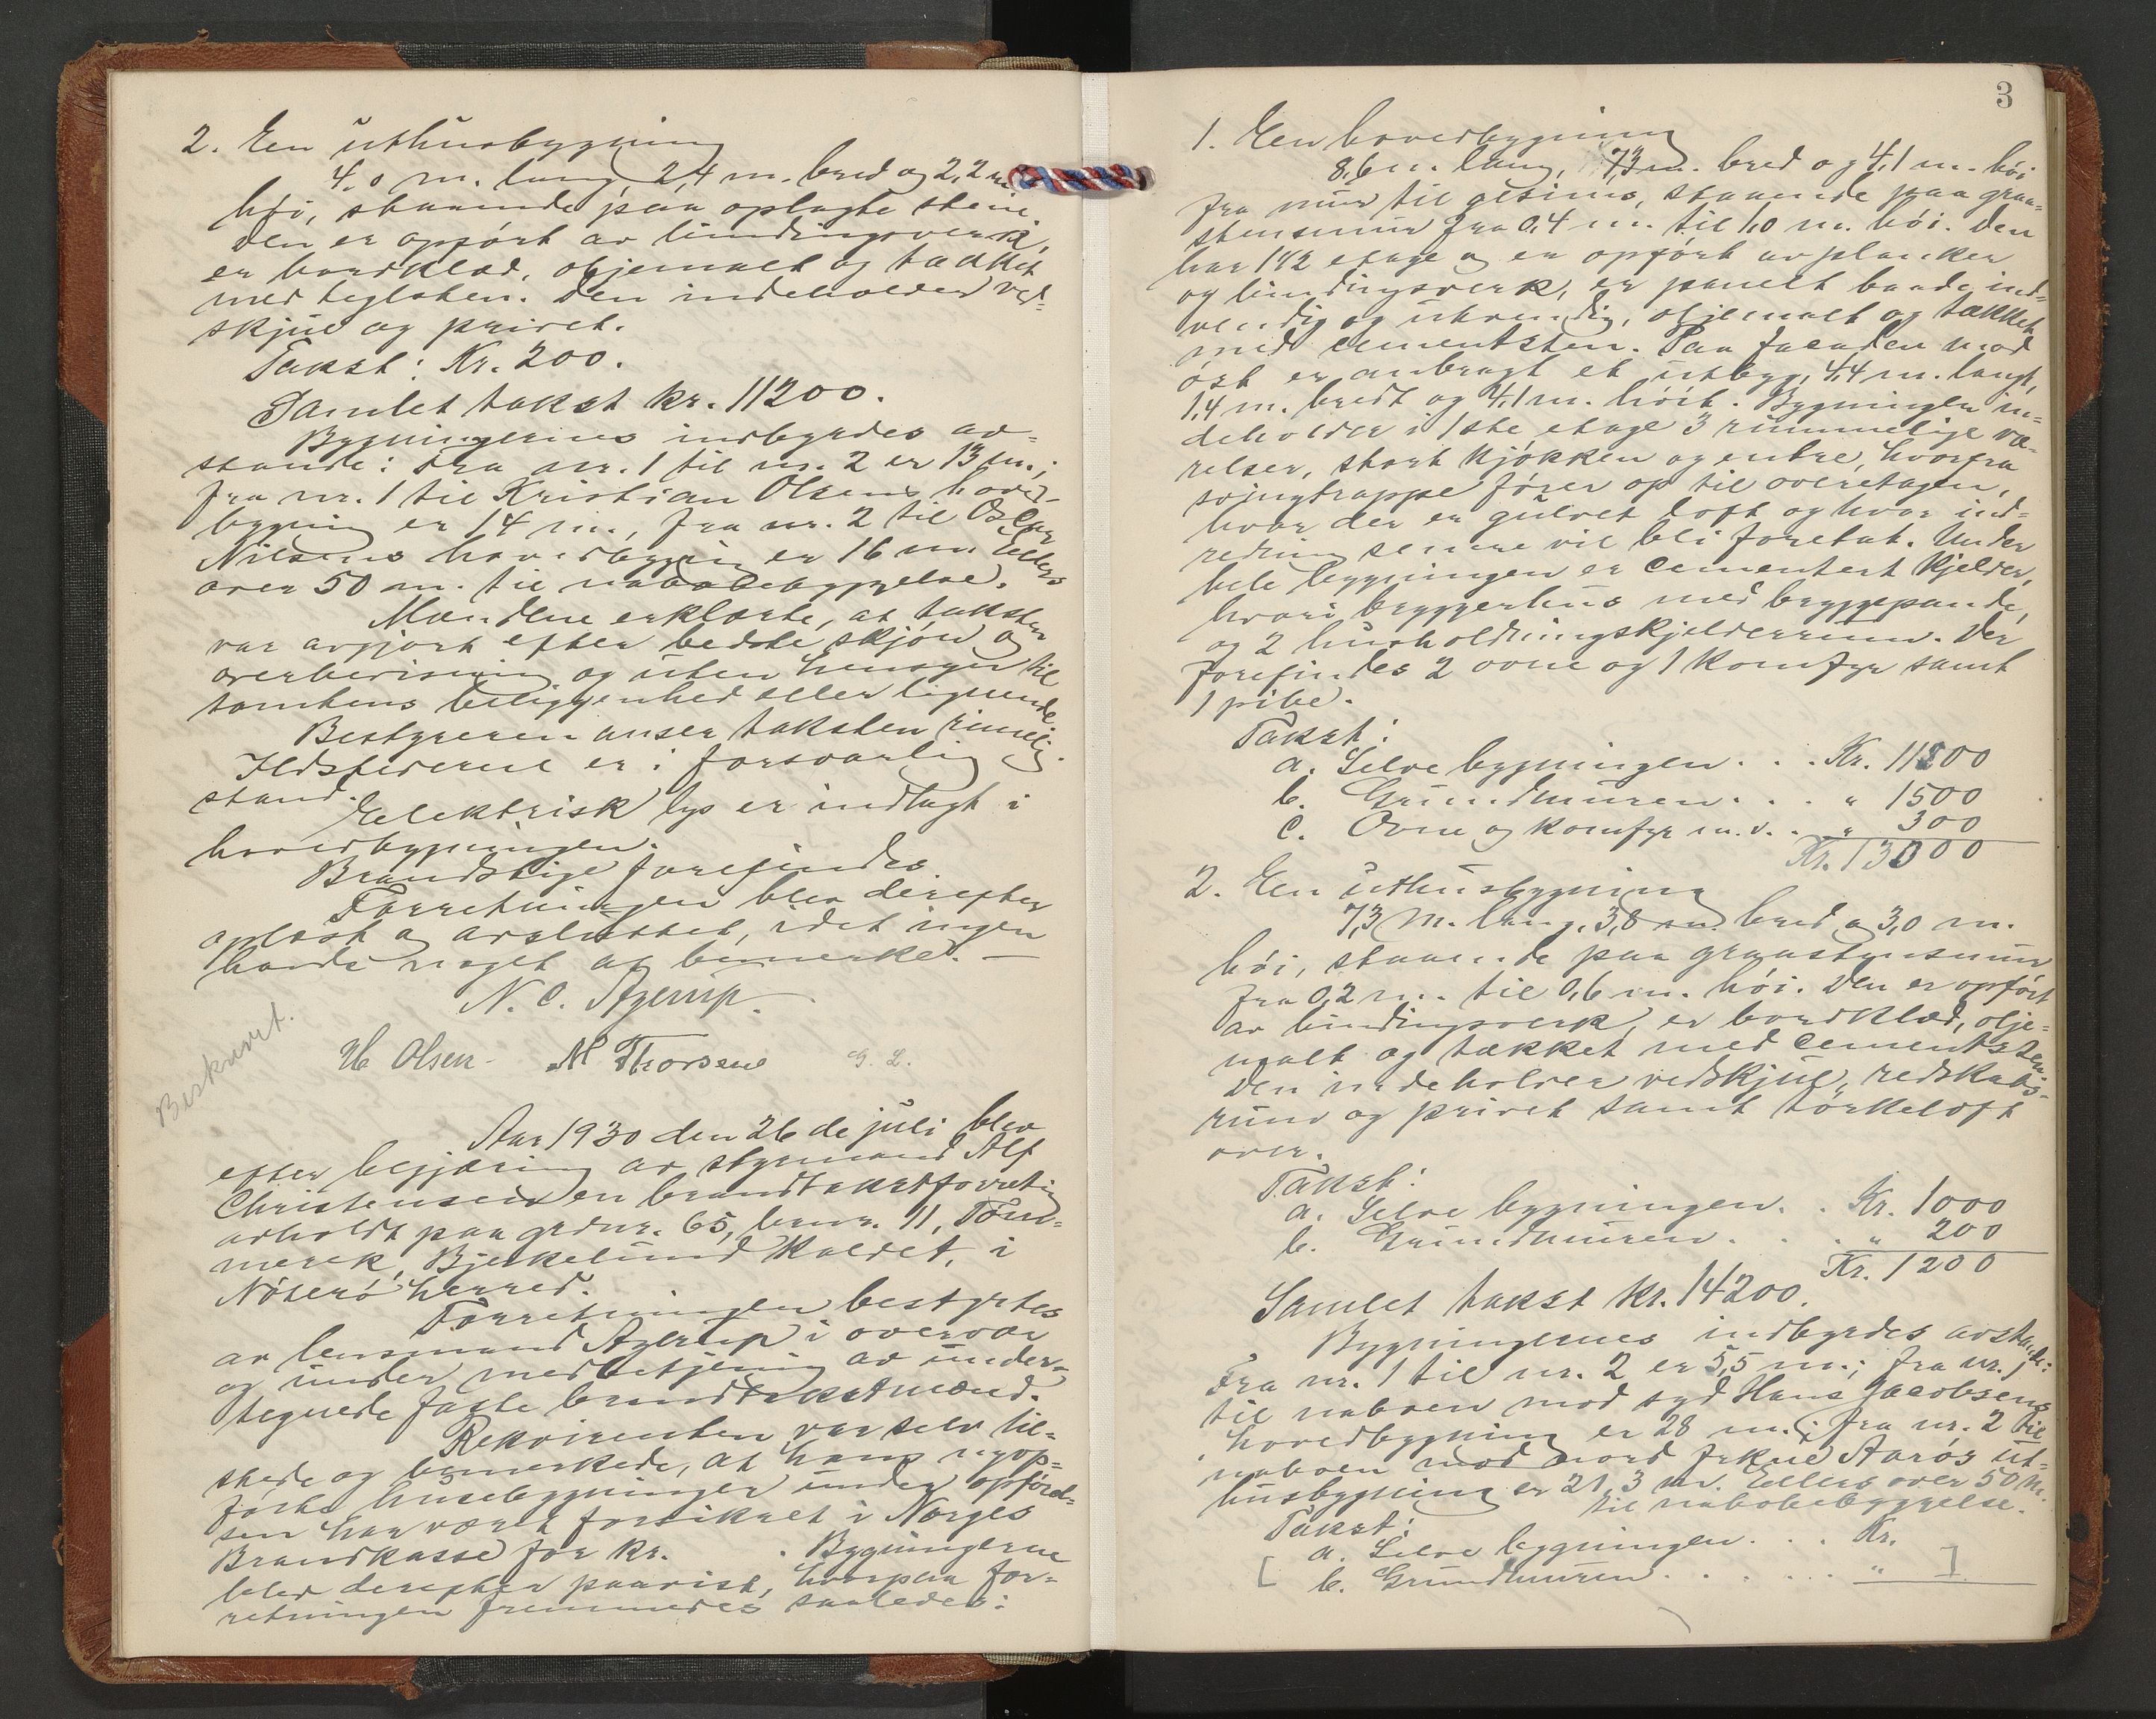 2. Een uthusbygning
4,0 m. lang, 2,4 m. bred og 2,2 m.
høi, staaende paa oplagte stene.
Den er opført av bindingsverk,
er bordklæd, oljemalt og tækket
med teglsten. Den indeholder ved-
skjul og privet.
Takst: Kr. 200.
Samlet takst kr. 11200.
Bygningernes indbyrdes av-
stande: Fra nr. 1 til nr. 2 er 13 m.;
fra nr. 1 til Kristian Olsens hoved-
bygning er 14 m., fra nr. 2 til Oscar
Nilsens hovedbygnin er 16 m. Ellers
over 50 m. til nabobebyggelse.
Mændene erklærte, at taksten
var avgjort efter bedste skjøn og
overbevisning og uten hensyn til
tomtens beliggenhed eller lignende.
Bestyreren anser taksten rimelig.
Ildstederne er i forsvarlig
stand.
Elektrisk lys er indlagt i
hovedbygningen.
Brandstige forefindes.
Forretningen blev derefter
oplæst og avsluttet, idet ingen
havde noget at bemerke. —
N. C. Agerup.
H Olsen - M Thorsen G. L.
Beskrevet.
Aar 1930 den 26 de juli blev
efter begjæring av styrmand Alf
Christensen en brandtakstforretning
avholdt paa grdnr. 65, brnr. 11, Tøm-
merek, Bjerkelund kaldet, i
Nøterø herred.
Forretningen bestyrtes
av lensmand Agerup i overvær
og under medbetjening av under-
tegnede faste brandtakstmænd.
Rekvirenten var selv til-
stede og bemerkede, at hans nyop-
førte husebygninger under opførel-
sen har været forsikret i Norges
Brandkasse for kr. . Bygningerne
blev derefter paavist, hvorpaa for-
retningen fremmedes saaledes:
3
1. Een hovedbygning
8,6 m. lang, 7,3 m. bred og 4,1 m. høi
fra mur til gesims, staaende paa graa-
stensmur fra 0,4 m. til 1,0 m. høi. Den
har 1 1/2 etage og er opført av planker
og bindingsverk, er panelt baade ind-
vendig og utvendig, oljemalt og tækket
med cementsten. Paa facaden mod
øst er anbragt et utbyg, 4,4 m. langt,
1,4 m. bredt og 4,1 m. høit. Bygningen in-
deholder i 1ste etage 3 rummelige væ-
relser, stort kjøkken og entre, hvorfra
svingtrappe fører op til overetagen,
hvor der er gulvet loft og hvor ind-
redning senere vil bli foretat. Under
hele bygningen er cementert kjelder,
hvori bryggerhus med bryggepande,
og 2 husholdningskjelderrum. Der
forefindes 2 ovne og 1 komfyr samt
1 pibe.
Takst:
a. Selve bygningen. . . Kr. 11200
b. Grundmuren. . . " 1500
c. Ovne og komfyr m. v. . " 300
Kr. 13000
2. Een uthusbygning
7,3 m. lang, 3,8 m. bred og 3,0 m.
høi, staaende paa graastensmur
fra 0,2 m. til 0,6 m. høi. Den er opført
av bindingsverk, er bordklæd, olje-
malt og tækket med cementsten.
Den indeholder vedskjul, redskabs-
rum og privet samt tørkeloft
over.
Takst:
a. Selve bygningen. . Kr. 1000
b. Grundmuren. . . . " 200
Kr. 1200
Samlet takst kr. 14200.
Bygningernes indbyrdes avstande:
Fra nr. 1 til nr. 2 er 5,5 m.; fra nr. 1
til naboen mod syd Hans Jacobsens
hovedbygning er 28 m.; fra nr. 2 til
naboen mod nord Aarøs ut-
husbygning er 21,3 m. Ellers over 50 m.
til nabobebyggelse.
Takst:
[ a. Selve bygningen. . . Kr.
b. Grundmuren. . . . . . " ]